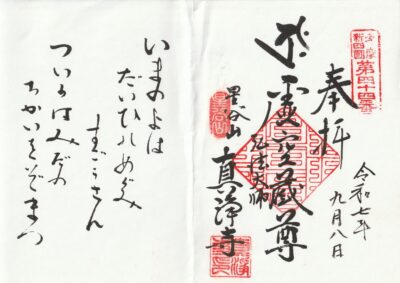 多摩
新四國
第四十四番
奉拝
令和七年
九月八日
虚空蔵尊
弘法大師
星谷山
真浄寺
いまのよは
だいひのめぐみ
すごうさん
ついにはみだの
ちかいをぞまつ